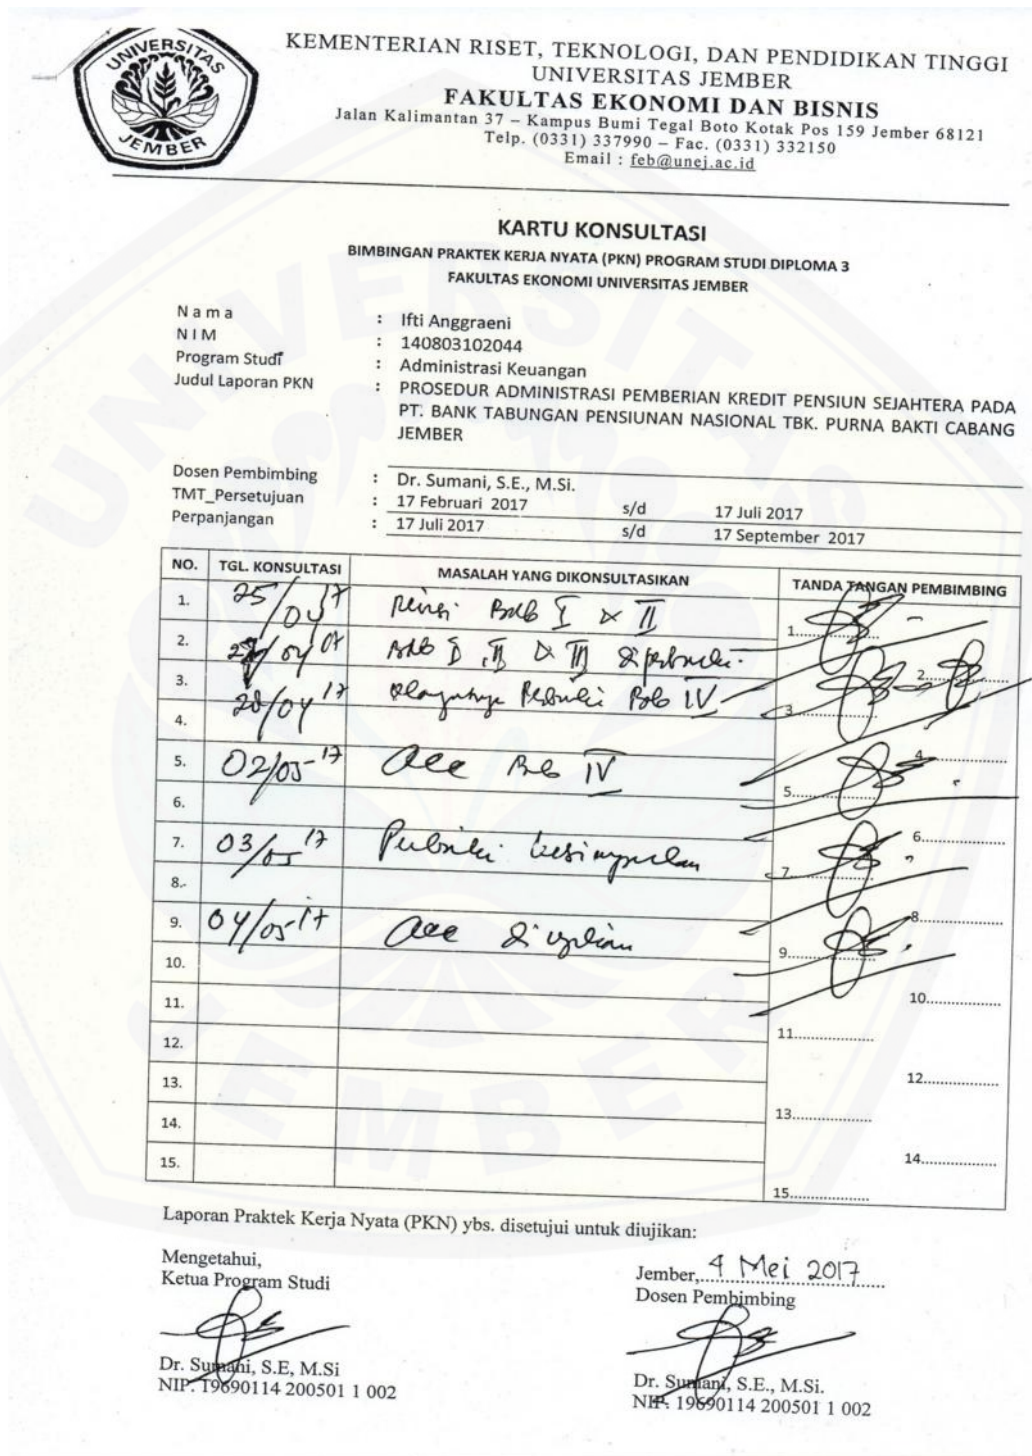 UNIVERSITAS
JEMBER
KEMENTERIAN RISET, TEKNOLOGI, DAN PENDIDIKAN TINGGI
UNIVERSITAS JEMBER
FAKULTAS EKONOMI DAN BISNIS
Jalan Kalimantan 37 – Kampus Bumi Tegal Boto Kotak Pos 159 Jember 68121
Telp. (0331) 337990 – Fac. (0331) 332150
Email : feb@unej.ac.id
KARTU KONSULTASI
BIMBINGAN PRAKTEK KERJA NYATA (PKN) PROGRAM STUDI DIPLOMA 3
FAKULTAS EKONOMI UNIVERSITAS JEMBER
N a m a : Ifti Anggraeni
N I M : 140803102044
Program Studi : Administrasi Keuangan
Judul Laporan PKN : PROSEDUR ADMINISTRASI PEMBERIAN KREDIT PENSIUN SEJAHTERA PADA
PT. BANK TABUNGAN PENSIUNAN NASIONAL TBK. PURNA BAKTI CABANG
JEMBER
Dosen Pembimbing : Dr. Sumani, S.E., M.Si.
TMT_Persetujuan : 17 Februari 2017 s/d 17 Juli 2017
Perpanjangan : 17 Juli 2017 s/d 17 September 2017
NO. TGL. KONSULTASI MASALAH YANG DIKONSULTASIKAN TANDA TANGAN PEMBIMBING
1. 25/04 17 Revisi Bab I & II 1..................
2. /04 Bab I, II & III diperbaiki. 2..................
3. 28/04 17 Perbaiki Bab IV 3..................
4. 4..................
5. 02/05-17 Acc Bab IV 5..................
6. 6..................
7. 03/05 17 Perbaiki kesimpulan 7..................
8. 8..................
9. 04/05-17 Acc diujikan 9..................
10. 10..................
11. 11..................
12. 12..................
13. 13..................
14. 14..................
15. 15..................
Laporan Praktek Kerja Nyata (PKN) ybs. disetujui untuk diujikan:
Mengetahui,
Ketua Program Studi
Dr. Sumani, S.E, M.Si
NIP. 19690114 200501 1 002
Jember, 4 Mei 2017
Dosen Pembimbing
Dr. Sumani, S.E., M.Si.
NIP. 19690114 200501 1 002